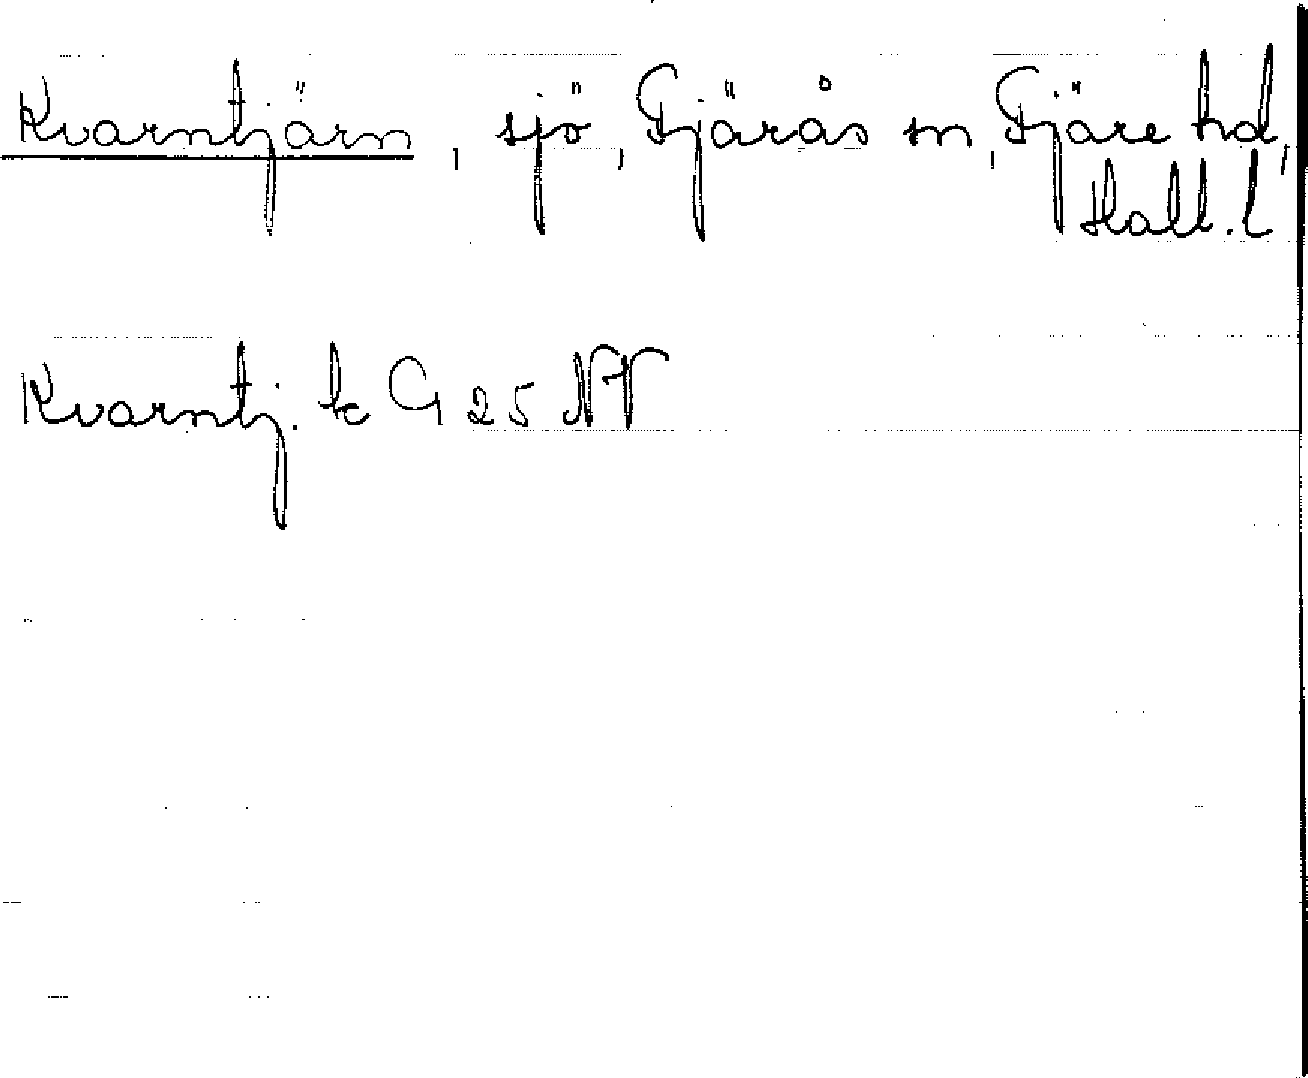 Kvarntjärn, sjö, Fjärås sn, Fjäre hd,
Hall. l
Kvarntj. k G 25 NV